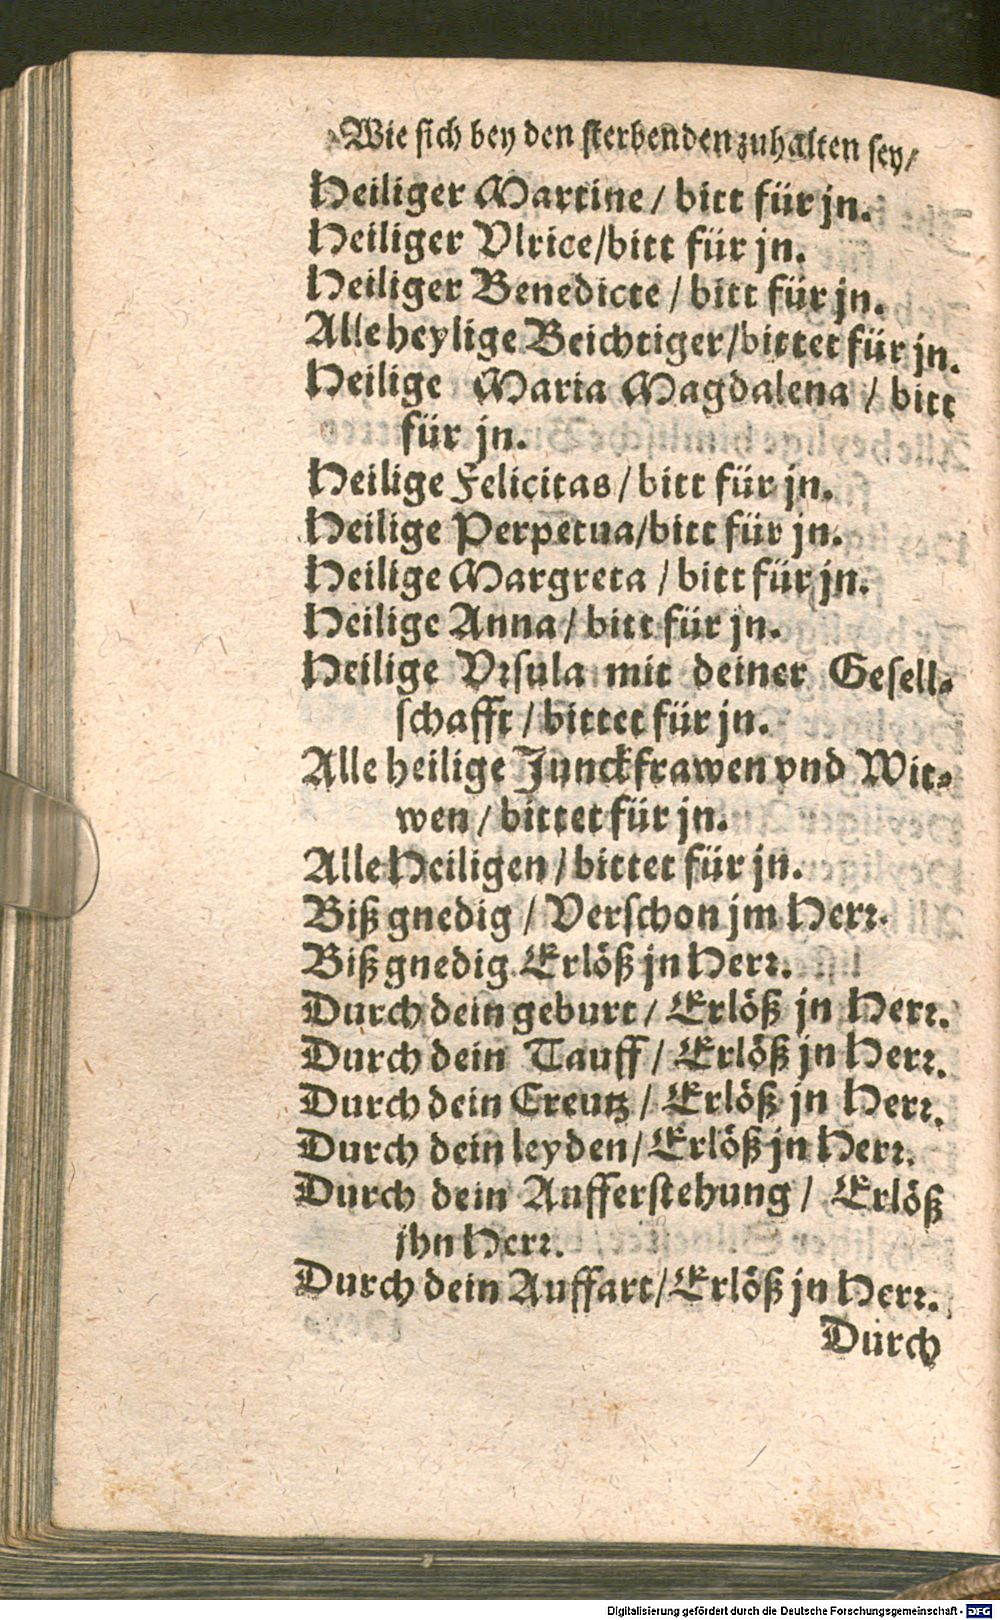 Wie ſich bey den ſterbenden zuhalten ſey/
Heiliger Martine / bitt für jn.
Heiliger Vlrice/bitt für jn.
Heiliger Benedicte / bitt für jn.
Alle heylige Beichtiger/bittet für jn.
Heilige Maria Magdalena / bitt
für jn.
Heilige Felicitas / bitt für jn.
Heilige Perpetua/bitt für jn.
Heilige Margreta / bitt für jn.
Heilige Anna / bitt für jn.
Heilige Vꝛſula mit deiner Geſell⸗
ſchafft / bittet für jn.
Alle heilige Junckfrawen vnd Wit⸗
wen / bittet für jn.
Alle Heiligen / bittet für jn.
Biß gnedig / Verſchon jm Herꝛ.
Biß gnedig Erlöß jn Herꝛ.
Durch dein geburt / Erlöß jn Herꝛ.
Durch dein Tauff / Erlöß jn Herꝛ.
Durch dein Creutz / Erlöß jn Herꝛ.
Durch dein leyden/ Erlöß jn Herꝛ.
Durch dein Aufferſtehung / Erlöß
jhn Herꝛ.
Durch dein Auffart/ Erlöß jn Herꝛ.
Durch
Digitalisierung gefördert durch die Deutsche Forschungsgemeinschaft - DFG